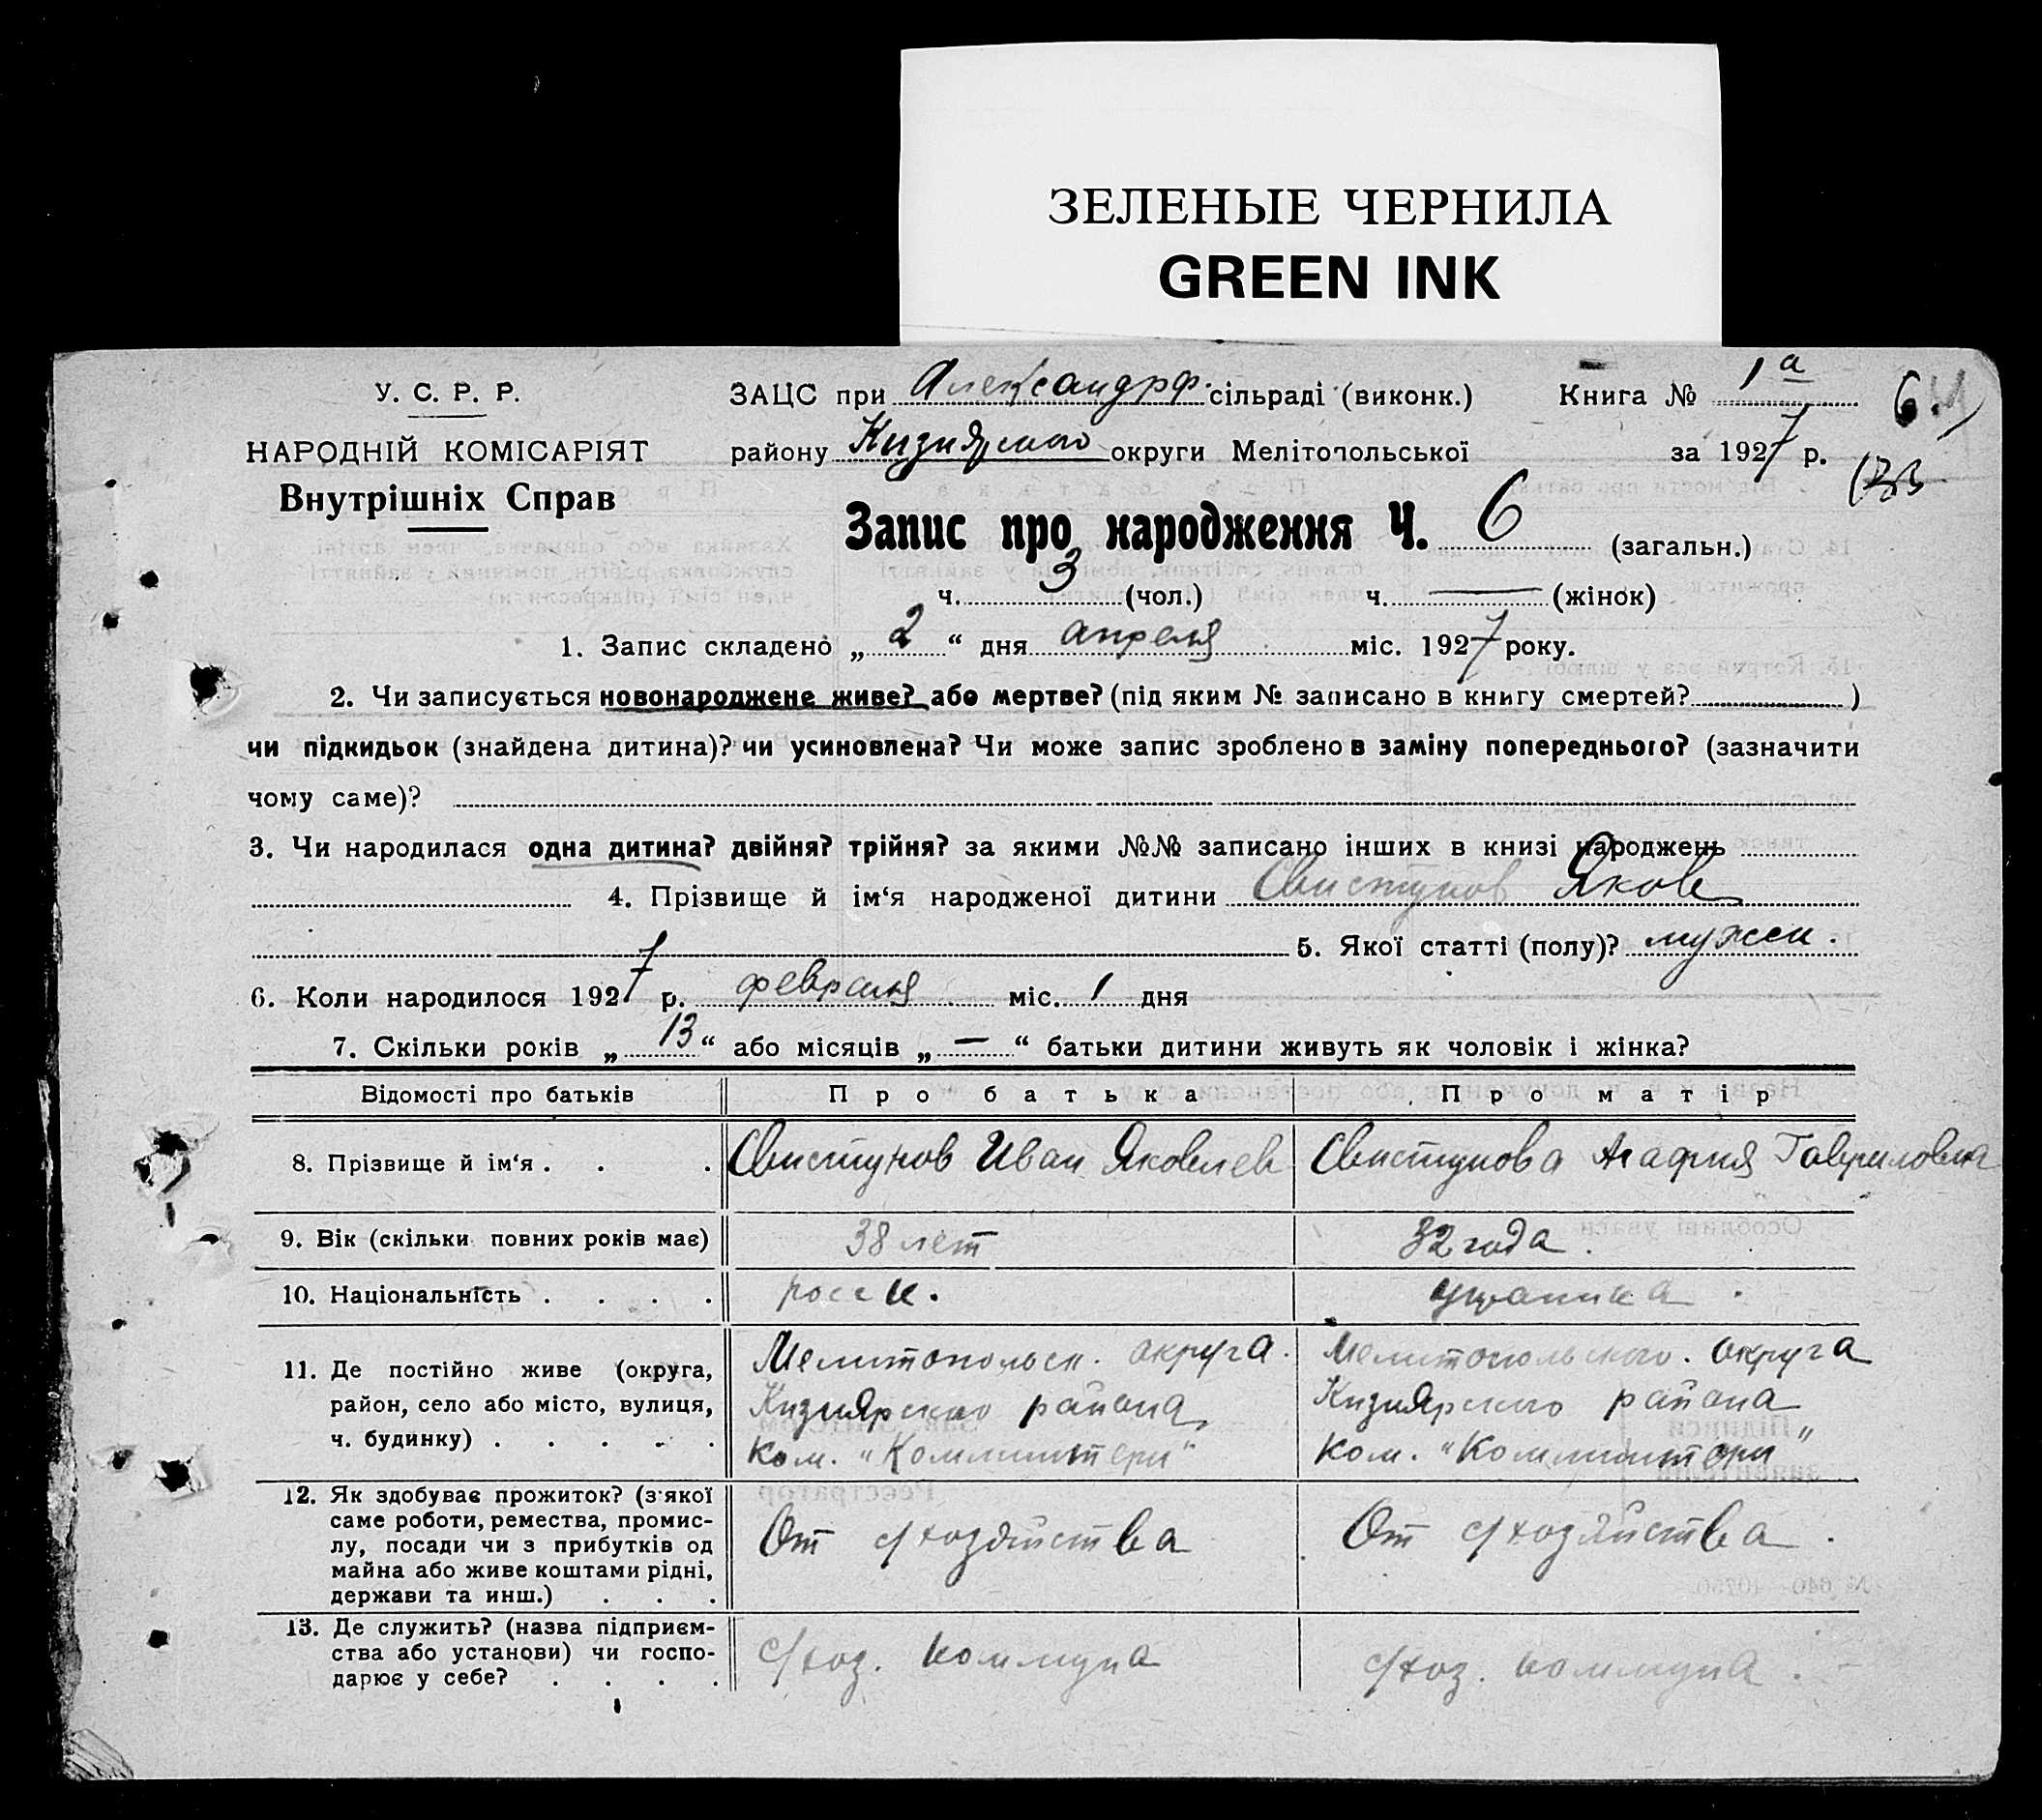 ЗЕЛЕНЫЕ ЧЕРНИЛА
GREEN INK
У. С. Р. Р.
НАРОДНІЙ КОМІСАРІЯТ
Внутрішніх Справ
ЗАЦС при Александрф. сільраді (виконк.) Книга № 1а 6.
району Кизиярского округи Мелітопольської за 1927 р.
Запис про народження Ч. 6 (загальн.)
ч. 3 (чол.) ч. — (жінок)
1. Запис складено „ 2 “ дня апреля міс. 1927 року.
2. Чи записується новонароджене живе? або мертве? (під яким № записано в книгу смертей? )
чи підкидьок (знайдена дитина)? чи усиновлена? Чи може запис зроблено в заміну попереднього? (зазначити
чому саме)?
3. Чи народилася одна дитина? двійня? трійня? за якими №№ записано інших в книзі народжень
4. Прізвище й ім‘я народженої дитини Свистунов Яков
5. Якої статті (полу)? мужск.
6. Коли народилося 1927 р. февраля міс. 1 дня
7. Скільки років „ 13 “ або місяців „ — “ батьки дитини живуть як чоловік і жінка?
Відомості про батьків Про батька Про матір
8. Прізвище й ім‘я . . . Свистунов Иван Яковлев Свистунова Агафия Гавриловна
9. Вік (скільки повних років має) 38 лет 32 года.
10. Національність . . . . росск. украинка.
11. Де постійно живе (округа, Мелитопольск. округа. Мелитопольского. округа
район, село або місто, вулиця, Кизиярского района, Кизиярского района
ч. будинку) . . . . . ком. "Коминтерн" ком. "Коминтерн"
12. Як здобуває прожиток? (з якої
саме роботи, ремества, промис-
лу, посади чи з прибутків од От с/хозяйства От с/хозяйства.
майна або живе коштами рідні,
держави та инш.) . . .
13. Де служить? (назва підприєм-
ства або установи) чи госпо- с/хоз. коммуна с/хоз. коммуна.
дарює у себе? . . . .